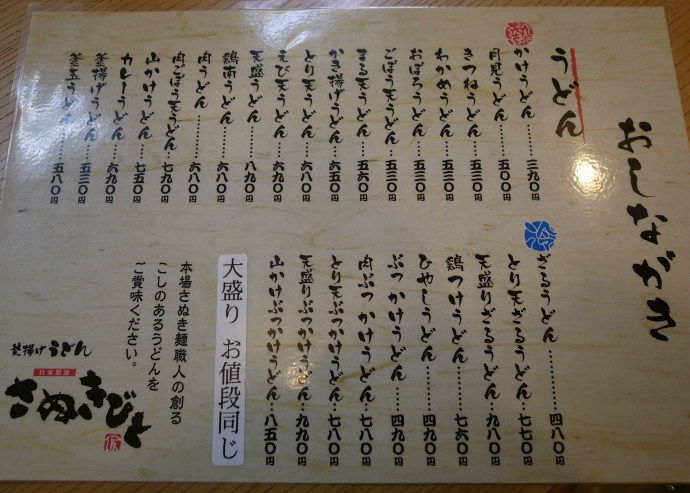 おしながき
うどん
かけうどん………三九〇円
月見うどん………五〇〇円
きつねうどん……五三〇円
わかめうどん……五三〇円
おぼろうどん……五三〇円
ごぼう天うどん…五三〇円
まる天うどん……五六〇円
かき揚げうどん…六五〇円
とり天うどん……六八〇円
えび天うどん……六九〇円
天盛うどん………八九〇円
鶏南うどん………六八〇円
肉うどん…………六八〇円
肉ごぼう天うどん…七九〇円
山かけうどん……七五〇円
カレーうどん……六九〇円
釜揚げうどん……五三〇円
釜玉うどん………五八〇円
冷
ざるうどん…………四八〇円
とり天ざるうどん…七七〇円
天盛りざるうどん…九八〇円
鶏つけうどん………七六〇円
ひやしうどん………四九〇円
ぶっかけうどん……四九〇円
肉ぶっかけうどん…七八〇円
とり天ぶっかけうどん…七八〇円
天盛りぶっかけうどん…九九〇円
山かけぶっかけうどん…八五〇円
大盛り お値段同じ
本場さぬき麺職人の創る
こしのあるうどんを
ご賞味ください。
釜揚げうどん
自家製麺
さぬきびと